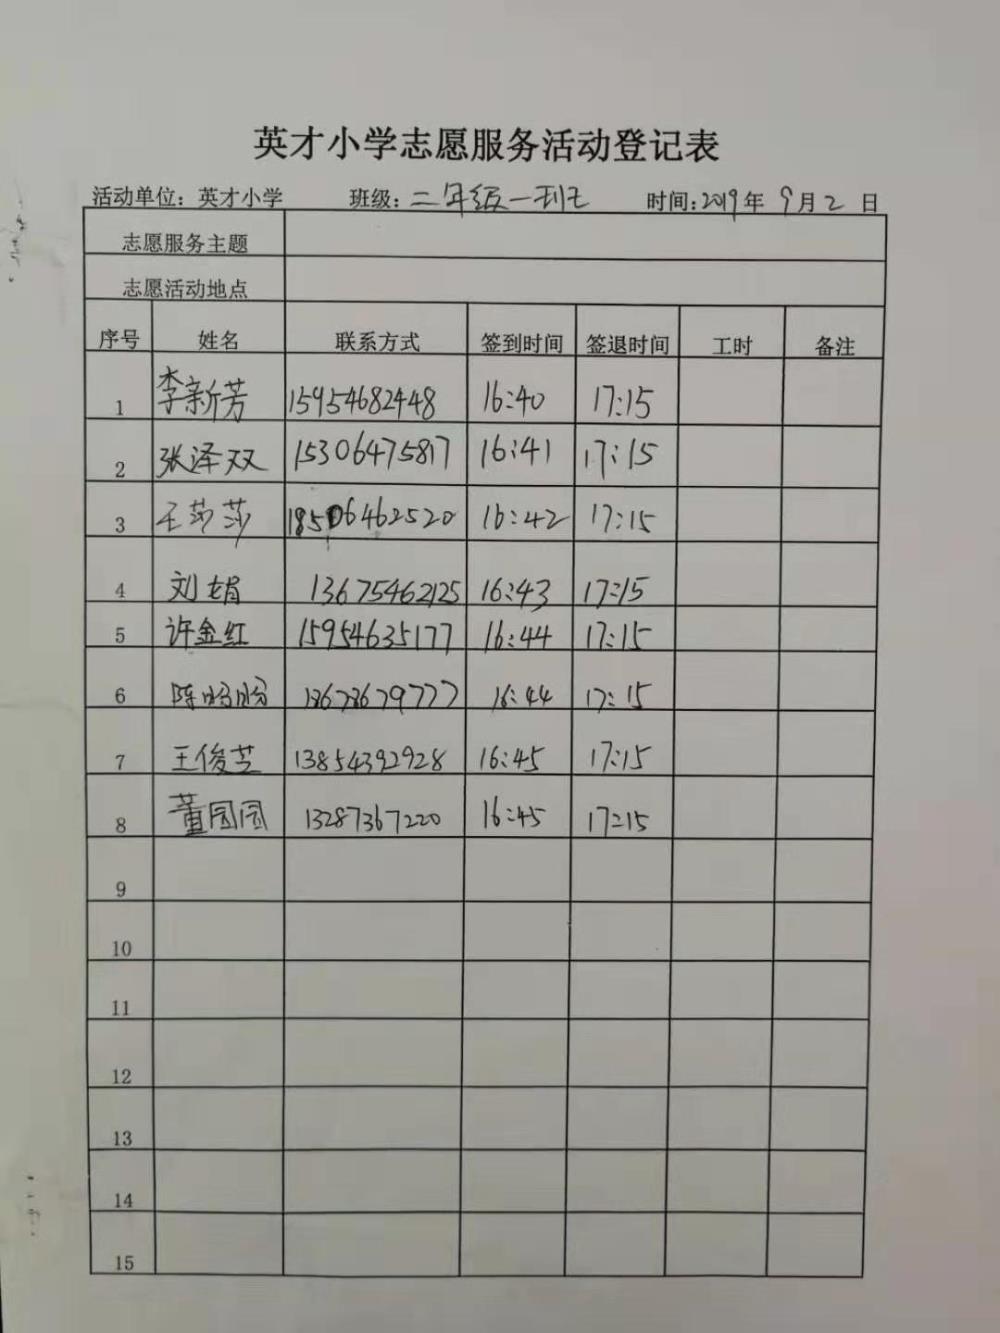 英才小学志愿服务活动登记表
活动单位：英才小学 班级：二年级一班 时间：2019年 9月2 日
志愿服务主题
志愿活动地点
序号 姓名 联系方式 签到时间 签退时间 工时 备注
1 李新芳 15954682448 16:40 17:15
2 张泽双 15306475817 16:41 17:15
3 王莎莎 18506462520 16:42 17:15
4 刘娟 13675462125 16:43 17:15
5 许金红 15954635177 16:44 17:15
6 陈盼盼 18678679777 16:44 17:15
7 王俊芝 13854392928 16:45 17:15
8 董园园 13287367220 16:45 17:15
9
10
11
12
13
14
15